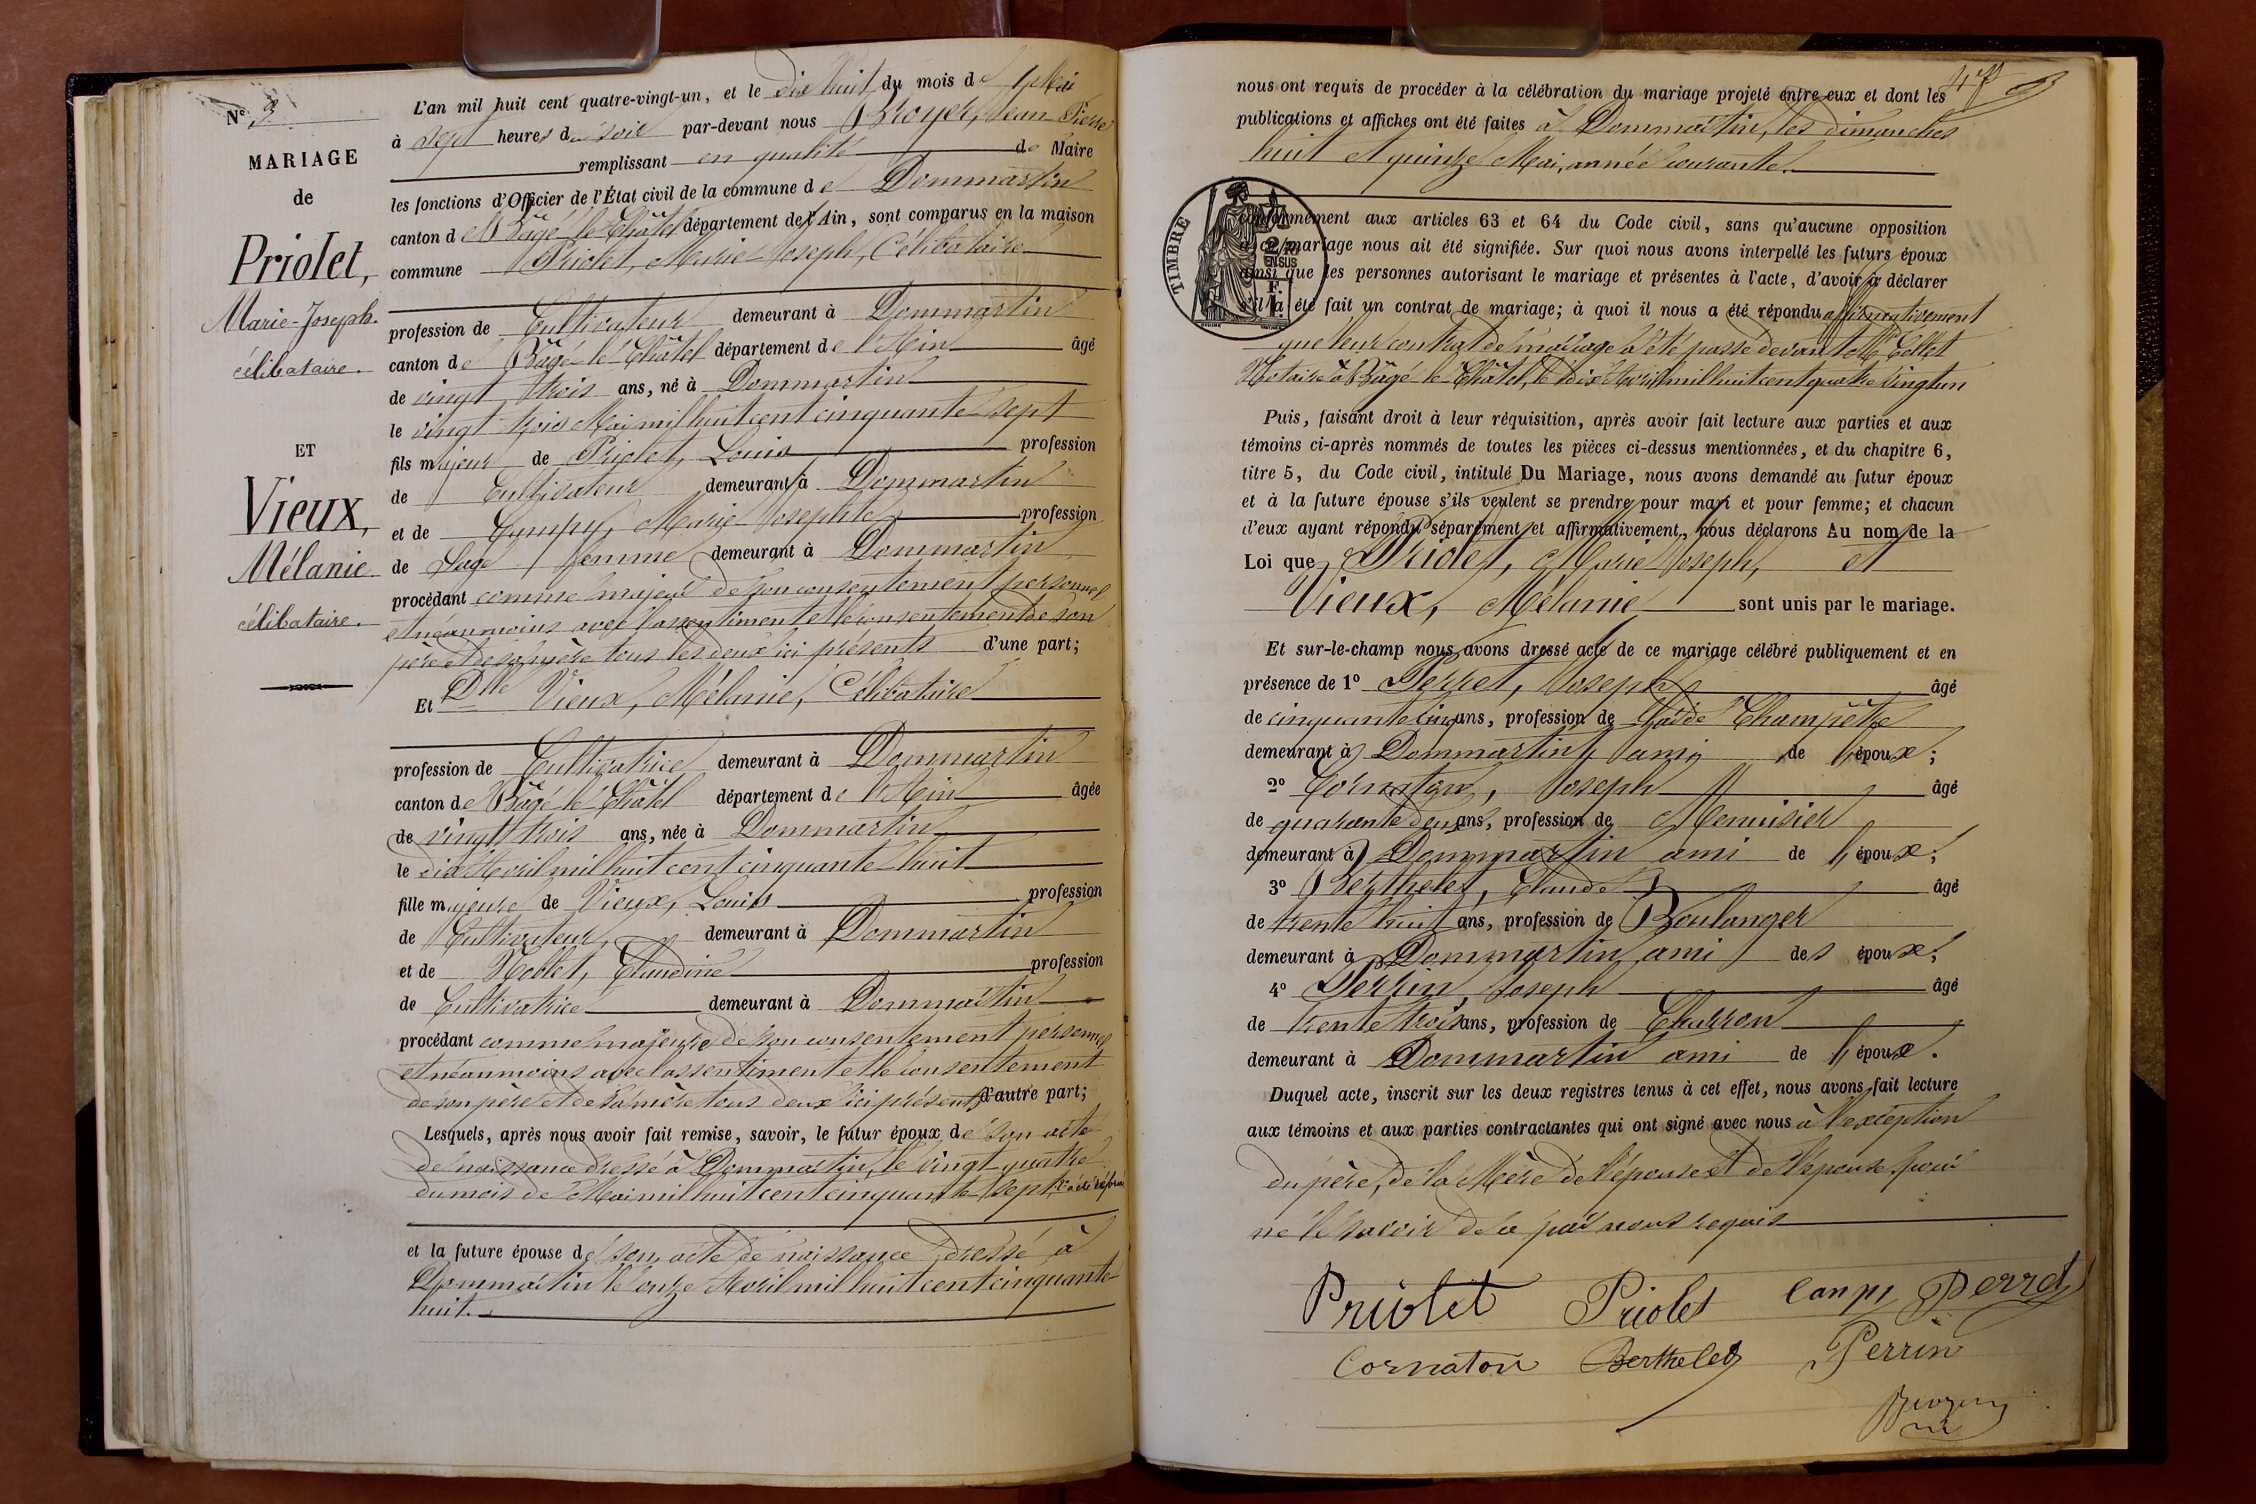 N° 3
MARIAGE
de
Priolet,
Marie-Joseph.
célibataire.
ET
Vieux,
Mélanie
célibataire.
L'an mil huit cent quatre-vingt-un, et le dix huit du mois de Mai
à sept heures du soir par-devant nous Broyer, Jean Pierre
remplissant en qualité de Maire
les fonctions d'Officier de l'État civil de la commune de Dommartin
canton de Bâgé le Châtel département de l'Ain, sont comparus en la maison
commune Priolet, Marie Joseph, Célibataire
profession de Cultivateur demeurant à Dommartin
canton de Bâgé le Châtel département de l'Ain âgé
de vingt trois ans, né à Dommartin
le vingt trois Mai mil huit cent cinquante sept
fils majeur de Priolet, Louis profession
de Cultivateur demeurant à Dommartin
et de Canpy, Marie Josephte profession
de Sage femme demeurant à Dommartin
procédant comme majeur de son consentement personnel
et néanmoins avec l'assentiment et le consentement de son
père et de sa mère tous les deux ici présents d'une part;
Et Dlle Vieux, Mélanie, Célibataire
profession de Cultivatrice demeurant à Dommartin
canton de Bâgé le Châtel département de l'Ain âgée
de vingt trois ans, née à Dommartin
le dix Avril mil huit cent cinquante huit
fille majeure de Vieux, Louis profession
de Cultivateur, demeurant à Dommartin
et de Noblet, Claudine profession
de Cultivatrice demeurant à Dommartin
procédant comme majeure de son consentement personnel
et néanmoins avec l'assentiment et le consentement
de son père et de sa mère tous deux ici présents d'autre part;
Lesquels, après nous avoir fait remise, savoir, le futur époux de son acte
de naissance dressé à Dommartin, le vingt quatre
du mois de Mai mil huit cent cinquante sept
et la future épouse de son acte de naissance dressé à
Dommartin le onze Avril mil huit cent cinquante
huit.
47
nous ont requis de procéder à la célébration du mariage projeté entre eux et dont les
publications et affiches ont été faites à Dommartin, les dimanches
huit et quinze Mai, année courante.
TIMBRE
conformément aux articles 63 et 64 du Code civil, sans qu'aucune opposition
à ce mariage nous ait été signifiée. Sur quoi nous avons interpellé les futurs époux
ainsi que les personnes autorisant le mariage et présentes à l'acte, d'avoir à déclarer
s'il a été fait un contrat de mariage; à quoi il nous a été répondu affirmativement
que leur contrat de mariage a été passé devant Me Tillet
Notaire à Bâgé le Châtel, le dix Avril mil huit cent quatre vingt un
Puis, faisant droit à leur réquisition, après avoir fait lecture aux parties et aux
témoins ci-après nommés de toutes les pièces ci-dessus mentionnées, et du chapitre 6,
titre 5, du Code civil, intitulé Du Mariage, nous avons demandé au futur époux
et à la future épouse s'ils veulent se prendre pour mari et pour femme; et chacun
d'eux ayant répondu séparément et affirmativement, nous déclarons Au nom de la
Loi que Priolet, Marie Joseph, et
Vieux, Mélanie sont unis par le mariage.
Et sur-le-champ nous avons dressé acte de ce mariage célébré publiquement et en
présence de 1° Perret, Joseph âgé
de cinquante cinq ans, profession de Garde Champêtre
demeurant à Dommartin, ami de l'époux;
2° Cornaton, Joseph âgé
de quarante deux ans, profession de Menuisier
demeurant à Dommartin ami de l'époux;
3° Berthelet, Claude âgé
de trente huit ans, profession de Boulanger
demeurant à Dommartin ami des époux;
4° Perrin, Joseph âgé
de trente trois ans, profession de Charron
demeurant à Dommartin ami de l'époux.
Duquel acte, inscrit sur les deux registres tenus à cet effet, nous avons fait lecture
aux témoins et aux parties contractantes qui ont signé avec nous à l'exception
du père, de la Mère de l'épouse et de l'épouse pour
ne le savoir de ce par nous requis
Priolet Priolet Canpy Perret
Cornaton Berthelet Perrin
Broyer